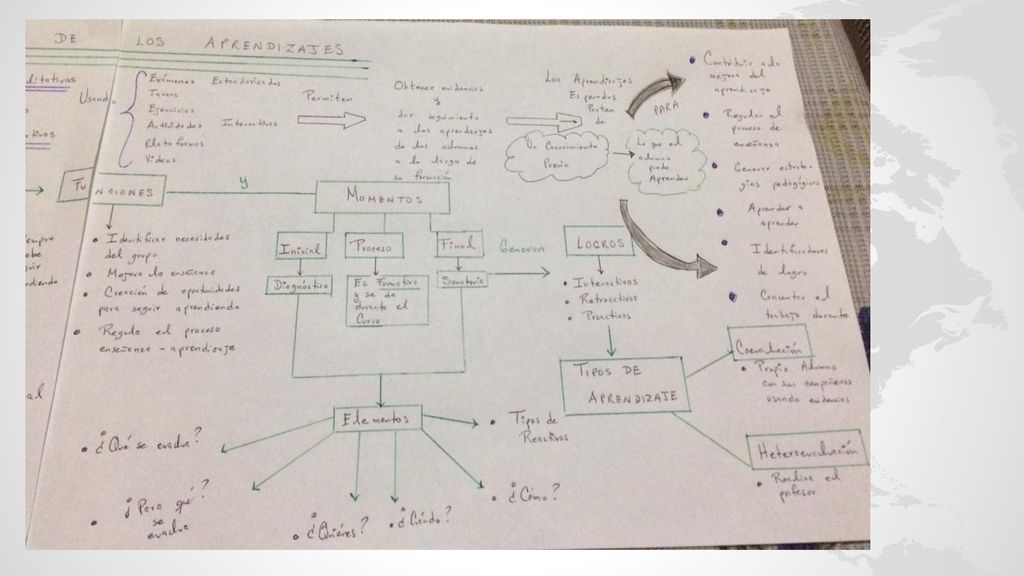 DE LOS APRENDIZAJES
Usando
Exámenes Estandarizados
Tareas
Ejercicios
Actividades Interactivas
Plataformas
Videos
Permiten
Obtener evidencias
y
dar seguimiento
a los aprendizajes
de los alumnos
a lo largo de
su formación
Los Aprendizajes
Esperados
Parten
de
Un Conocimiento
Previo
Lo que el
alumno
puede
Aprender
PARA
• Contribuir a la
mejora del
aprendizaje
• Regular el
proceso de
enseñanza
• Generar estrate-
gias pedagógicas
• Aprender a
aprender
• Identificadores
de logro
• Concentrar el
trabajo durante
FUNCIONES
y
MOMENTOS
• Identificar necesidades
del grupo
• Mejora la enseñanza
• Creación de oportunidades
para seguir aprendiendo
• Regula el proceso
enseñanza - aprendizaje
Inicial
Proceso
Final
Diagnóstico
Es Formativo
y se da
durante el
Curso
Sumatoria
Generan
LOGROS
• Interactivos
• Retroactivos
• Proactivos
TIPOS DE
APRENDIZAJE
Coevaluación
• Propio Alumno
con sus compañeros
usando evidencias
Heteroevaluación
• Realiza el
profesor
Elementos
• Tipos de
Reactivos
• ¿Qué se evalua?
• ¿Para qué?
se
evalua
• ¿Quiénes?
• ¿Cuándo?
• ¿Cómo?